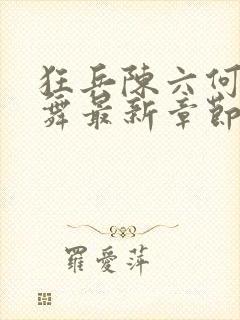 狂兵陳六何
舞最新章節
羅愛萍